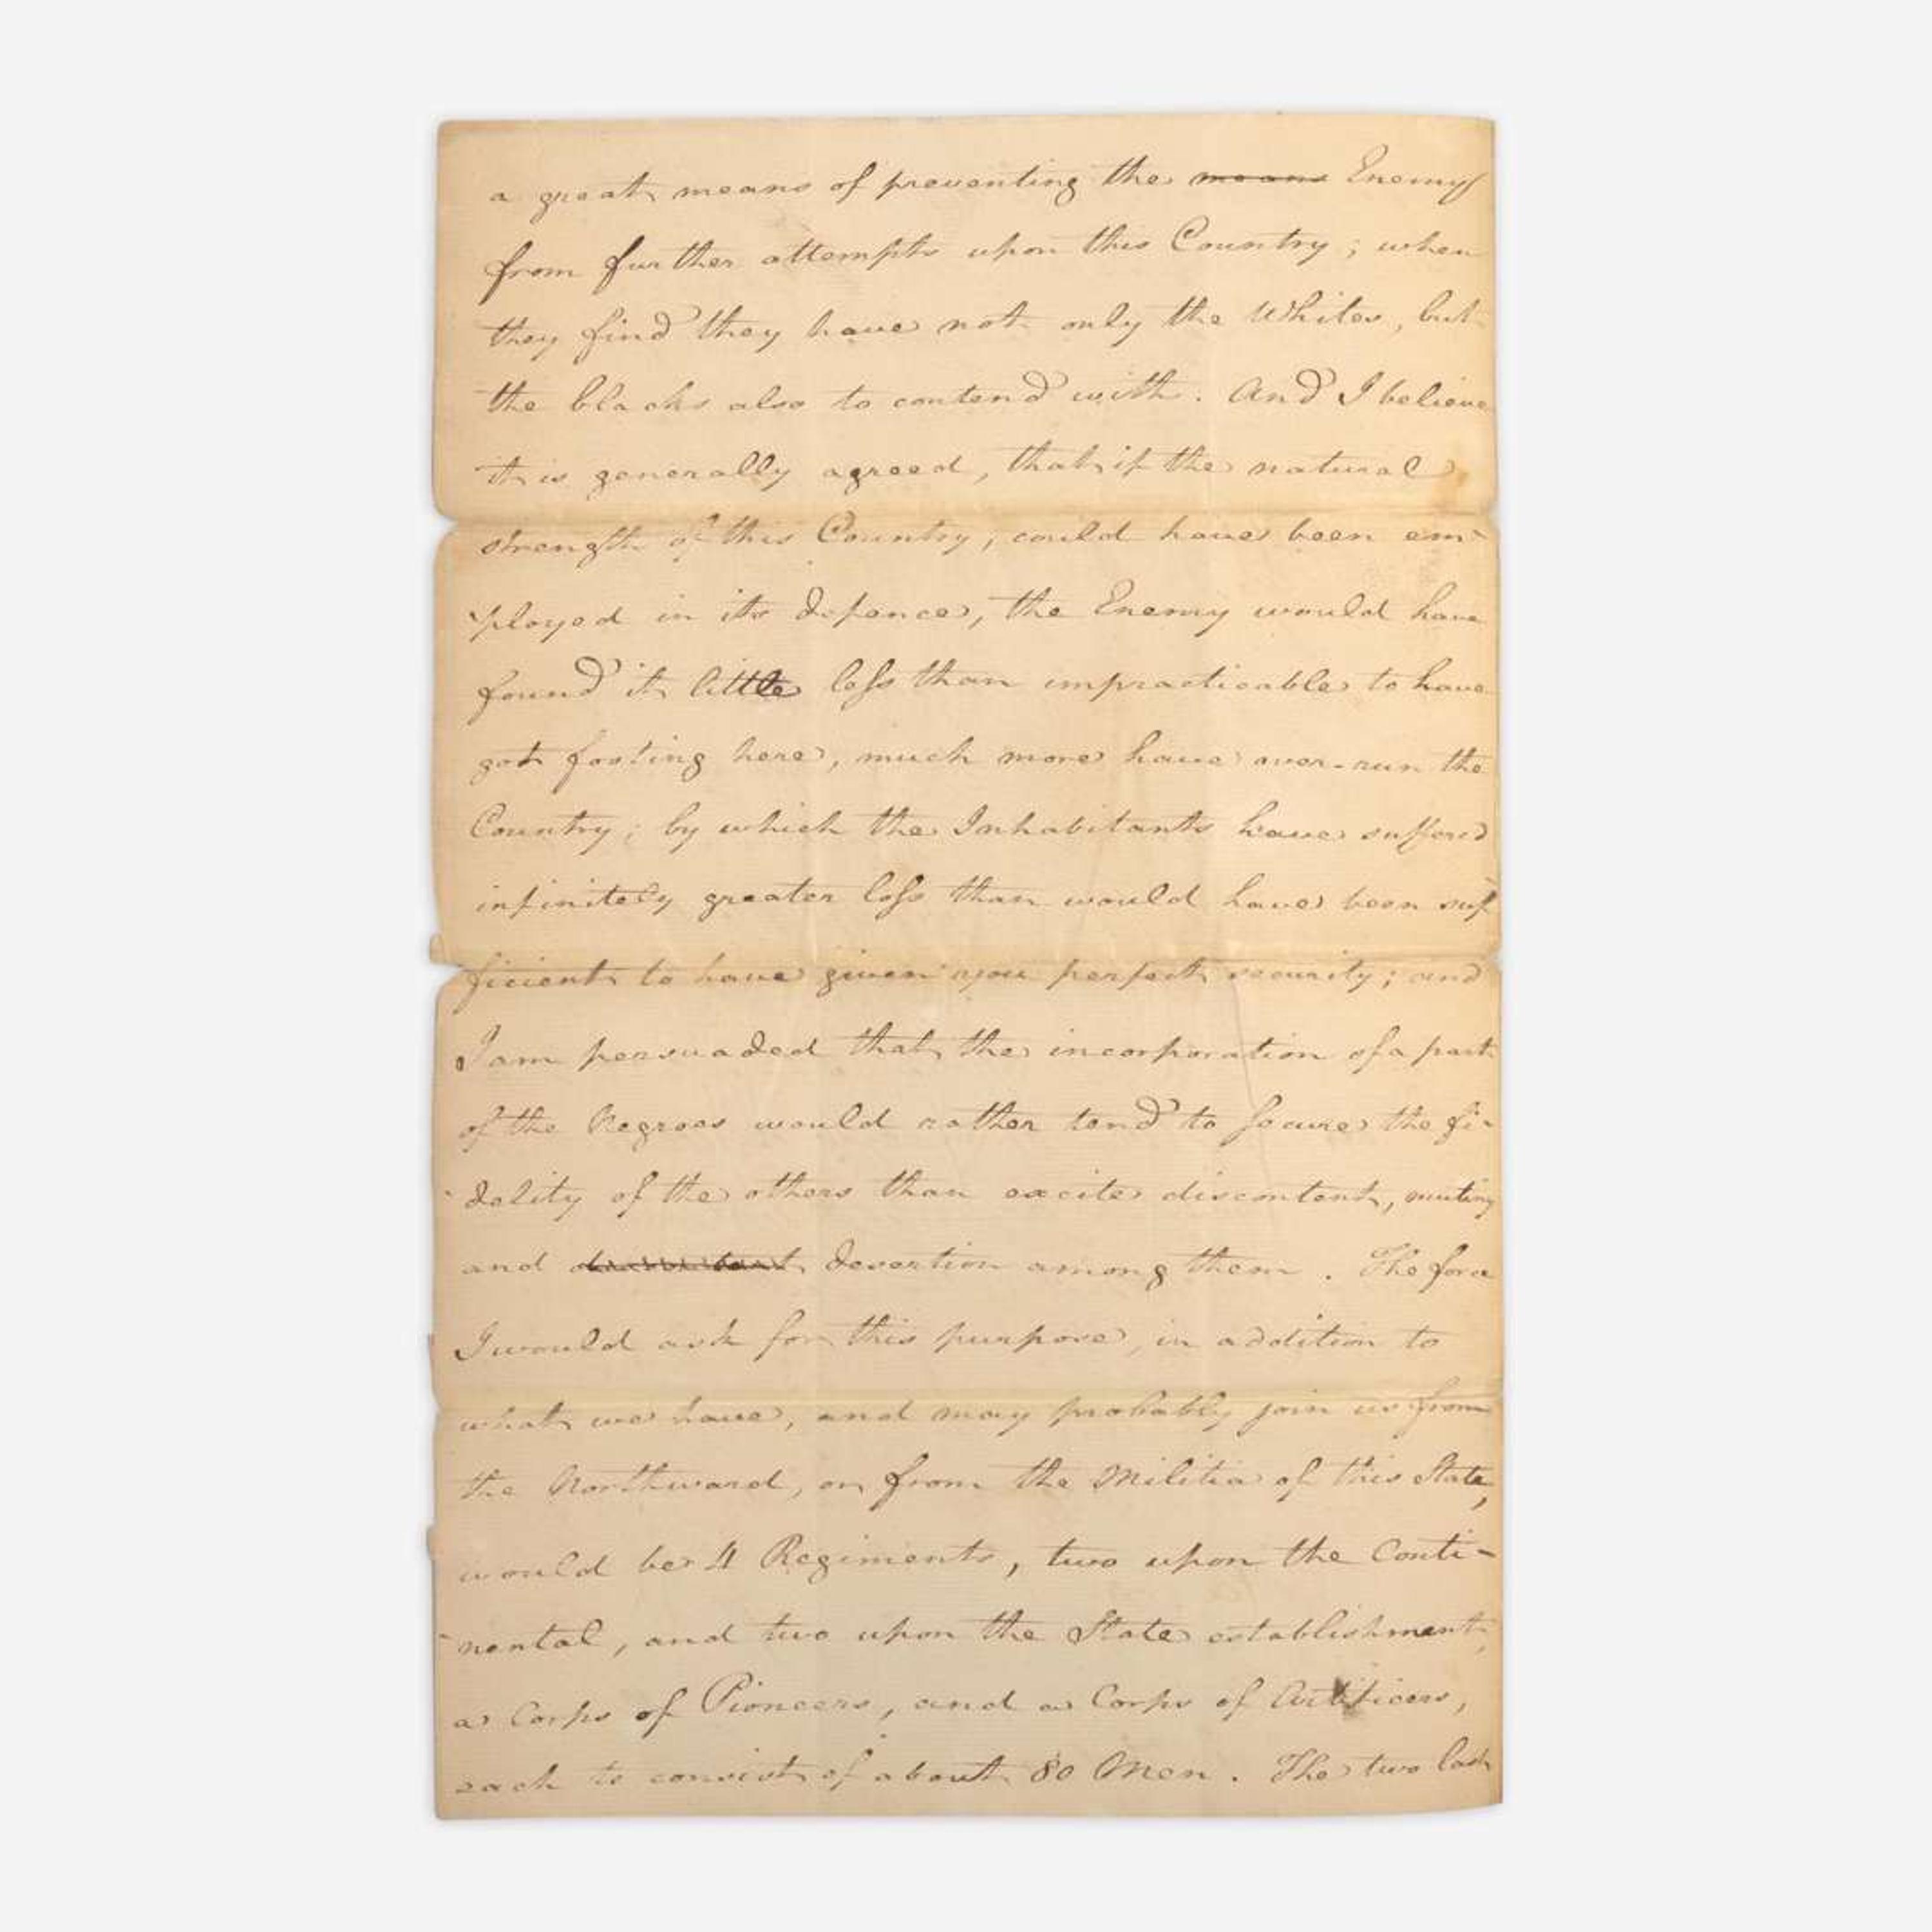 a great means of preventing the means Enemy
from further attempts upon this Country; when
they find they have not only the Whites, but
the blacks also to contend with. And I believe
it is generally agreed, that if the natural
strength of this Country, could have been em-
ployed in its defence, the Enemy would have
found it little less than impracticable to have
got footing here, much more have over-run the
Country; by which the Inhabitants have suffered
infinitely greater loss than would have been suf
ficient to have given you perfect security; and
I am persuaded that the incorporation of a part
of the Negroes would rather tend to secure the fi-
delity of the others than excite discontent, mutiny
and desertion among them. The force
I would ask for this purpose, in addition to
what we have, and may probably join us from
the Northward, or from the Militia of this State,
would be 4 Regiments, two upon the Conti-
nental, and two upon the State establishment,
a Corps of Pioneers, and a Corps of Artificers,
each to consist of about 80 Men. The two last